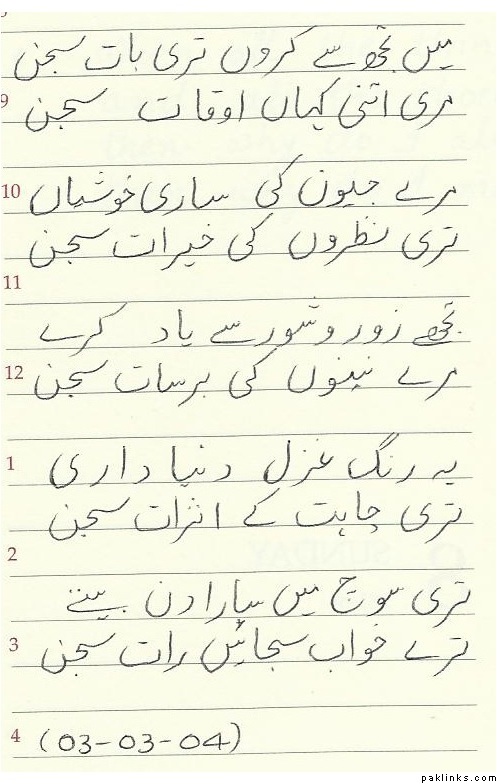 میں تجھ سے کروں تری بات سجن
9 مری اتنی کہاں اوقات سجن
10 مرے جیون کی ساری خوشیاں
تری نظروں کی خیرات سجن
11
تجھے زور و شور سے یاد کرے
12 مرے نینوں کی برسات سجن
1 یہ رنگ غزل دنیا داری
تری چاہت کے اثرات سجن
2
تری سوچ میں سارا دن بیتے
3 ترے خواب سجائیں رات سجن
4 (03-03-04)
paklinks.com